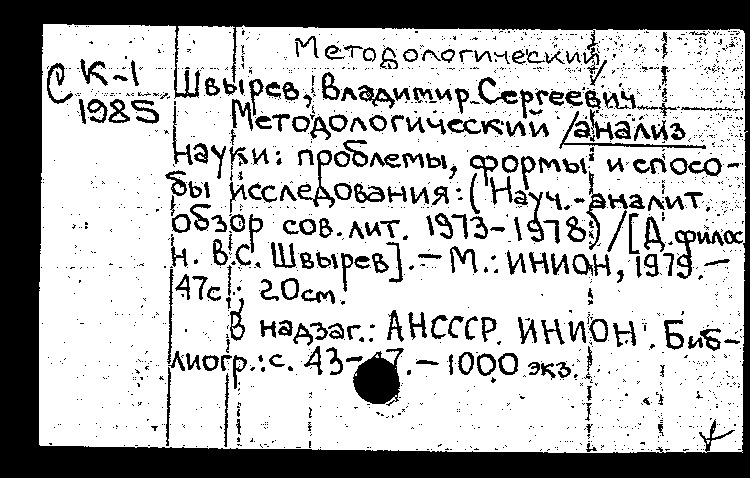 Методологический
С К-1
1985
Швырев, Владимир Сергеевич
Методологический /анализ
науки: проблемы, формы и спосо-
бы исследования: (Науч.-аналит.
обзор сов. лит. 1973-1978) / [Д. филос.
н. В.С. Швырев]. - М.: ИНИОН, 1979. -
47с.; 20см.
В надзаг.: АНСССР. ИНИОН. Биб-
лиогр.: с. 43-47. - 1000 экз.